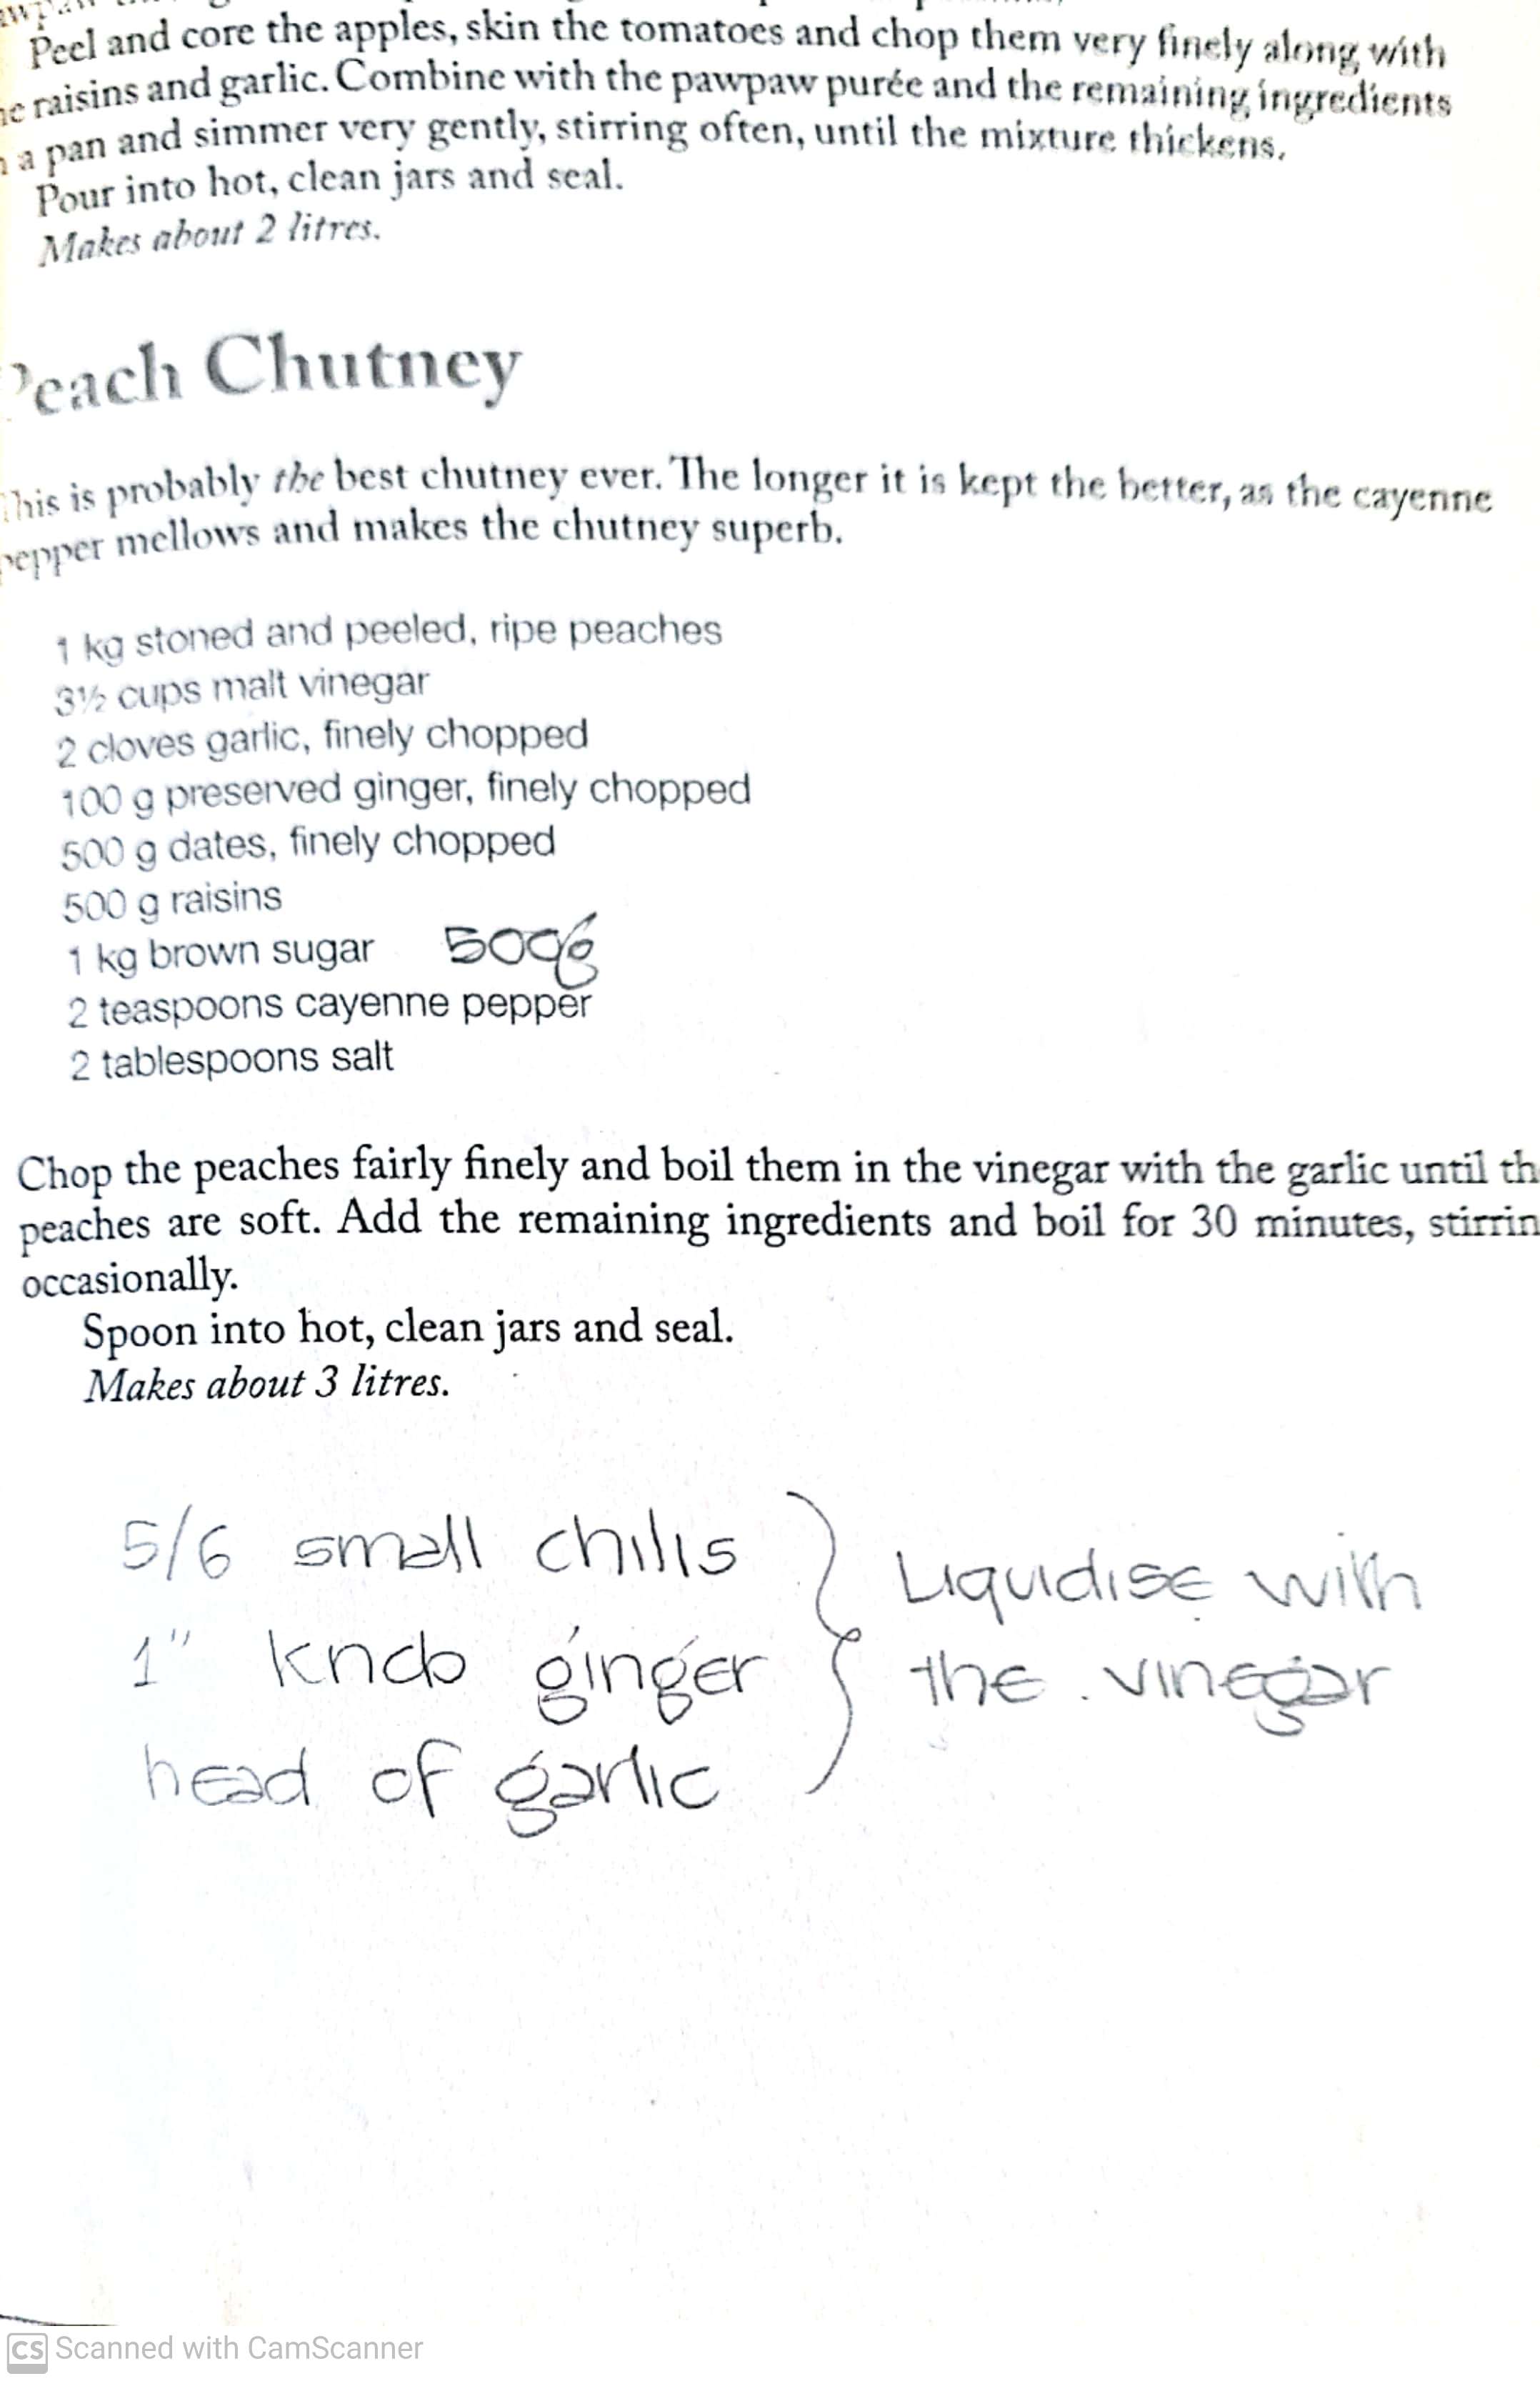 Peel and core the apples, skin the tomatoes and chop them very finely along with
raisins and garlic. Combine with the pawpaw purée and the remaining ingredients
a pan and simmer very gently, stirring often, until the mixture thickens.
Pour into hot, clean jars and seal.
Makes about 2 litres.
Peach Chutney
This is probably the best chutney ever. The longer it is kept the better, as the cayenne
pepper mellows and makes the chutney superb.
1 kg stoned and peeled, ripe peaches
3½ cups malt vinegar
2 cloves garlic, finely chopped
100 g preserved ginger, finely chopped
500 g dates, finely chopped
500 g raisins
1 kg brown sugar 500g
2 teaspoons cayenne pepper
2 tablespoons salt
Chop the peaches fairly finely and boil them in the vinegar with the garlic until th
peaches are soft. Add the remaining ingredients and boil for 30 minutes, stirrin
occasionally.
Spoon into hot, clean jars and seal.
Makes about 3 litres.
5/6 small chilis
1" knob ginger
head of garlic
Liquidise with
the vinegar
CS Scanned with CamScanner